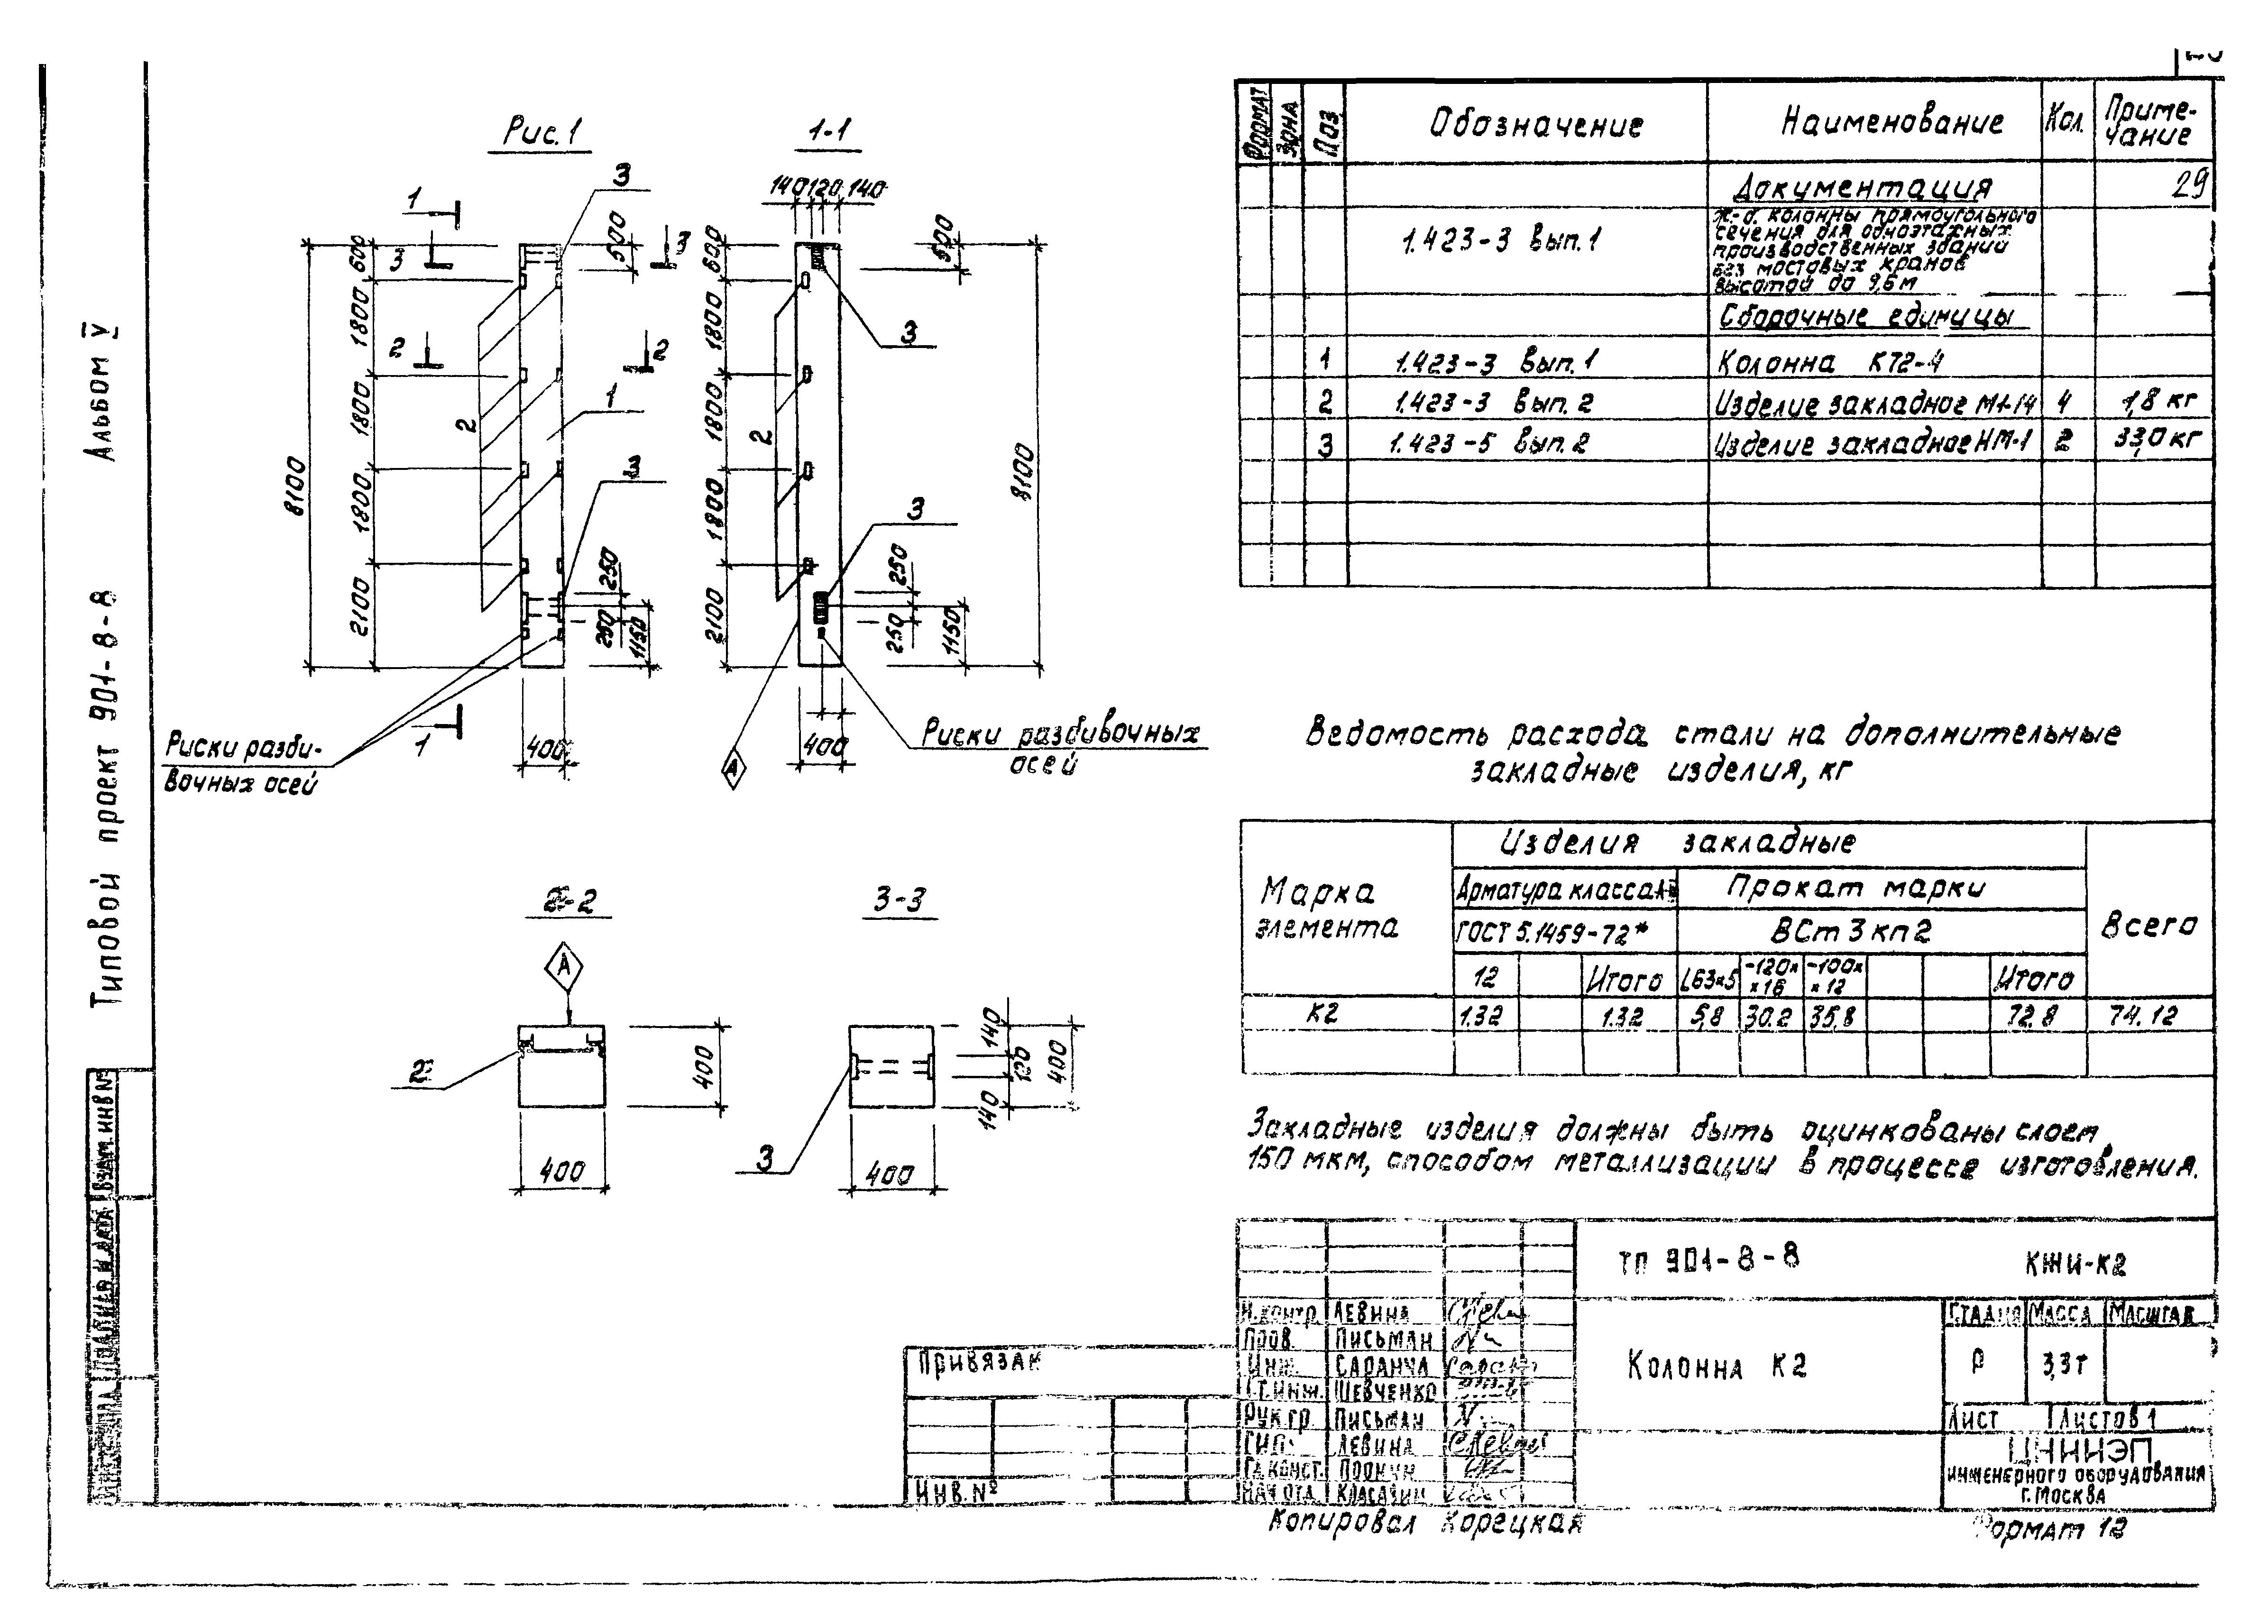 Альбом V
Типовой проект 901-8-8
Рис. 1
1-1
140 120 140
1
3
3
3
600
1800
1800
1800
2100
8100
500
2
2
2
1
3
250
250
1150
400
1
Риски разби-
вочных осей
600
1800
1800
1800
2100
500
3
2
3
8100
250
250
1150
400
А
Риски разбивочных
осей
2-2
А
2
400
400
3-3
3
140
120
140
400
400
Формат
Зона
Поз
Обозначение
Наименование
Кол.
Приме-
чание
Документация
29
1.423-3 вып. 1
ж-б. колонны прямоугольного
сечения для одноэтажных
производственных зданий
без мостовых кранов
высотой до 9,6 м
Сборочные единицы
1 1.423-3 вып. 1 Колонна К72-4
2 1.423-3 вып. 2 Изделие закладное М1-14 4 1,8 кг
3 1.423-5 вып. 2 Изделие закладное НМ-1 2 33,0 кг
Ведомость расхода стали на дополнительные
закладные изделия, кг
Марка
элемента
Изделия закладные
Всего
Арматура класса
Прокат марки
ГОСТ 5.1459-72*
ВСт 3 кп 2
12 Итого L63×5 -120×
×16 -100×
×12 Итого
К2 1.32 1.32 5,8 30.2 35,8 72.8 74.12
Закладные изделия должны быть оцинкованы слоем
150 мкм, способом металлизации в процессе изготовления.
Взам. инв №
ТП 901-8-8
КЖИ-К2
Н. контр. Левина
Пров. Письман
Инж. Саранча
Ст. инж. Шевченко
Рук. гр. Письман
ГИП Левина
Гл. конст.
Нач. отд.
Колонна К2
Стадия Масса Масштаб
Р 3,3т
Лист Листов 1
ЦНИИЭП
инженерного оборудования
г. Москва
Привязан
Инв. №
Копировал Корецкая
Формат 12